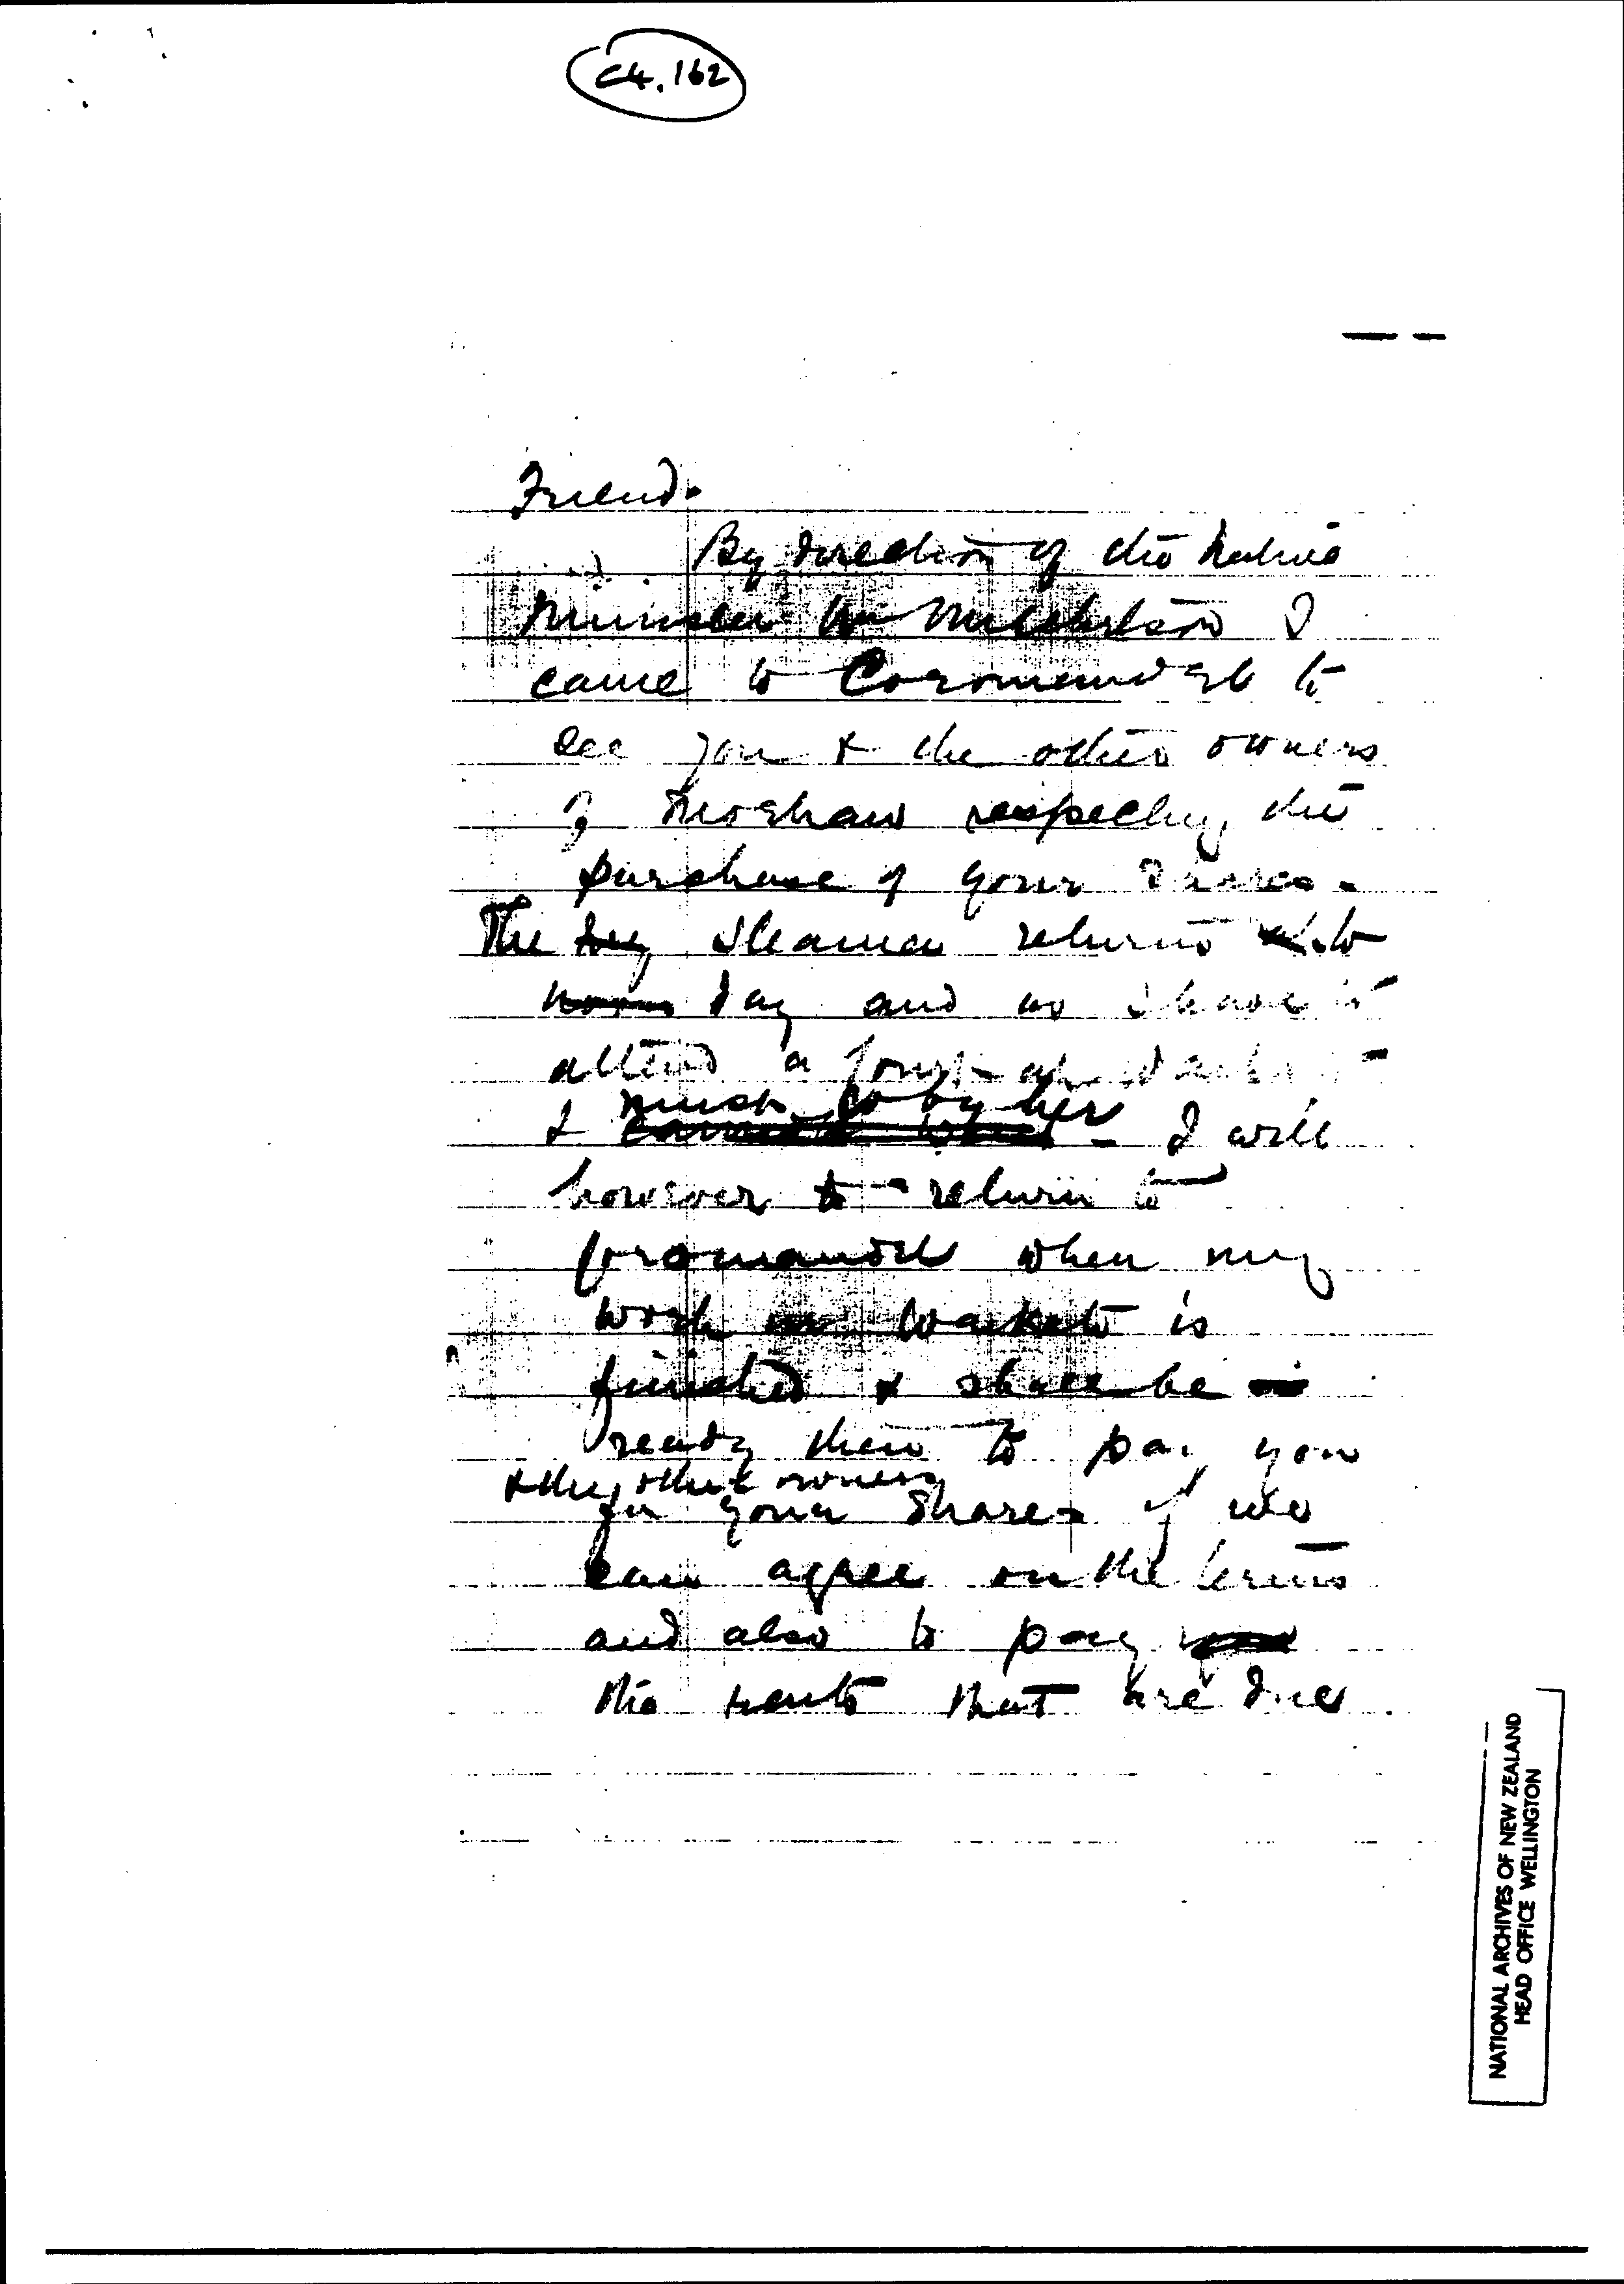 C4.162
Friend.
By direction of the Native
Minister Mr Mitchelson I
came to Coromandel to
see you & the other owners
of Moehau respecting the
purchase of your shares.
The steamer returns to
day and as I have to
attend a Court at Waikato
& must go by her - I will
however return to
Coromandel when my
work Waikato is
finished & shall be
ready then to pay you
& the other owners
for your shares if we
can agree on the terms
and also to pay
the rents that are due
NATIONAL ARCHIVES OF NEW ZEALAND
HEAD OFFICE WELLINGTON